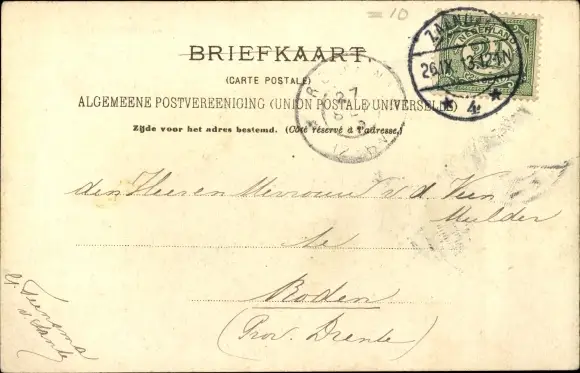 = 10
BRIEFKAART.
(CARTE POSTALE)
ALGEMEENE POSTVEREENIGING (UNION POSTALE UNIVERSELLE)
Zijde voor het adres bestemd. (Côté réservé à l'adresse.)
NEDERLAND
26 IX 13 12-1N
4
den Heer en Mevrouw v. d. Veen
Mulder
te
Roden
(Prov. Drente)